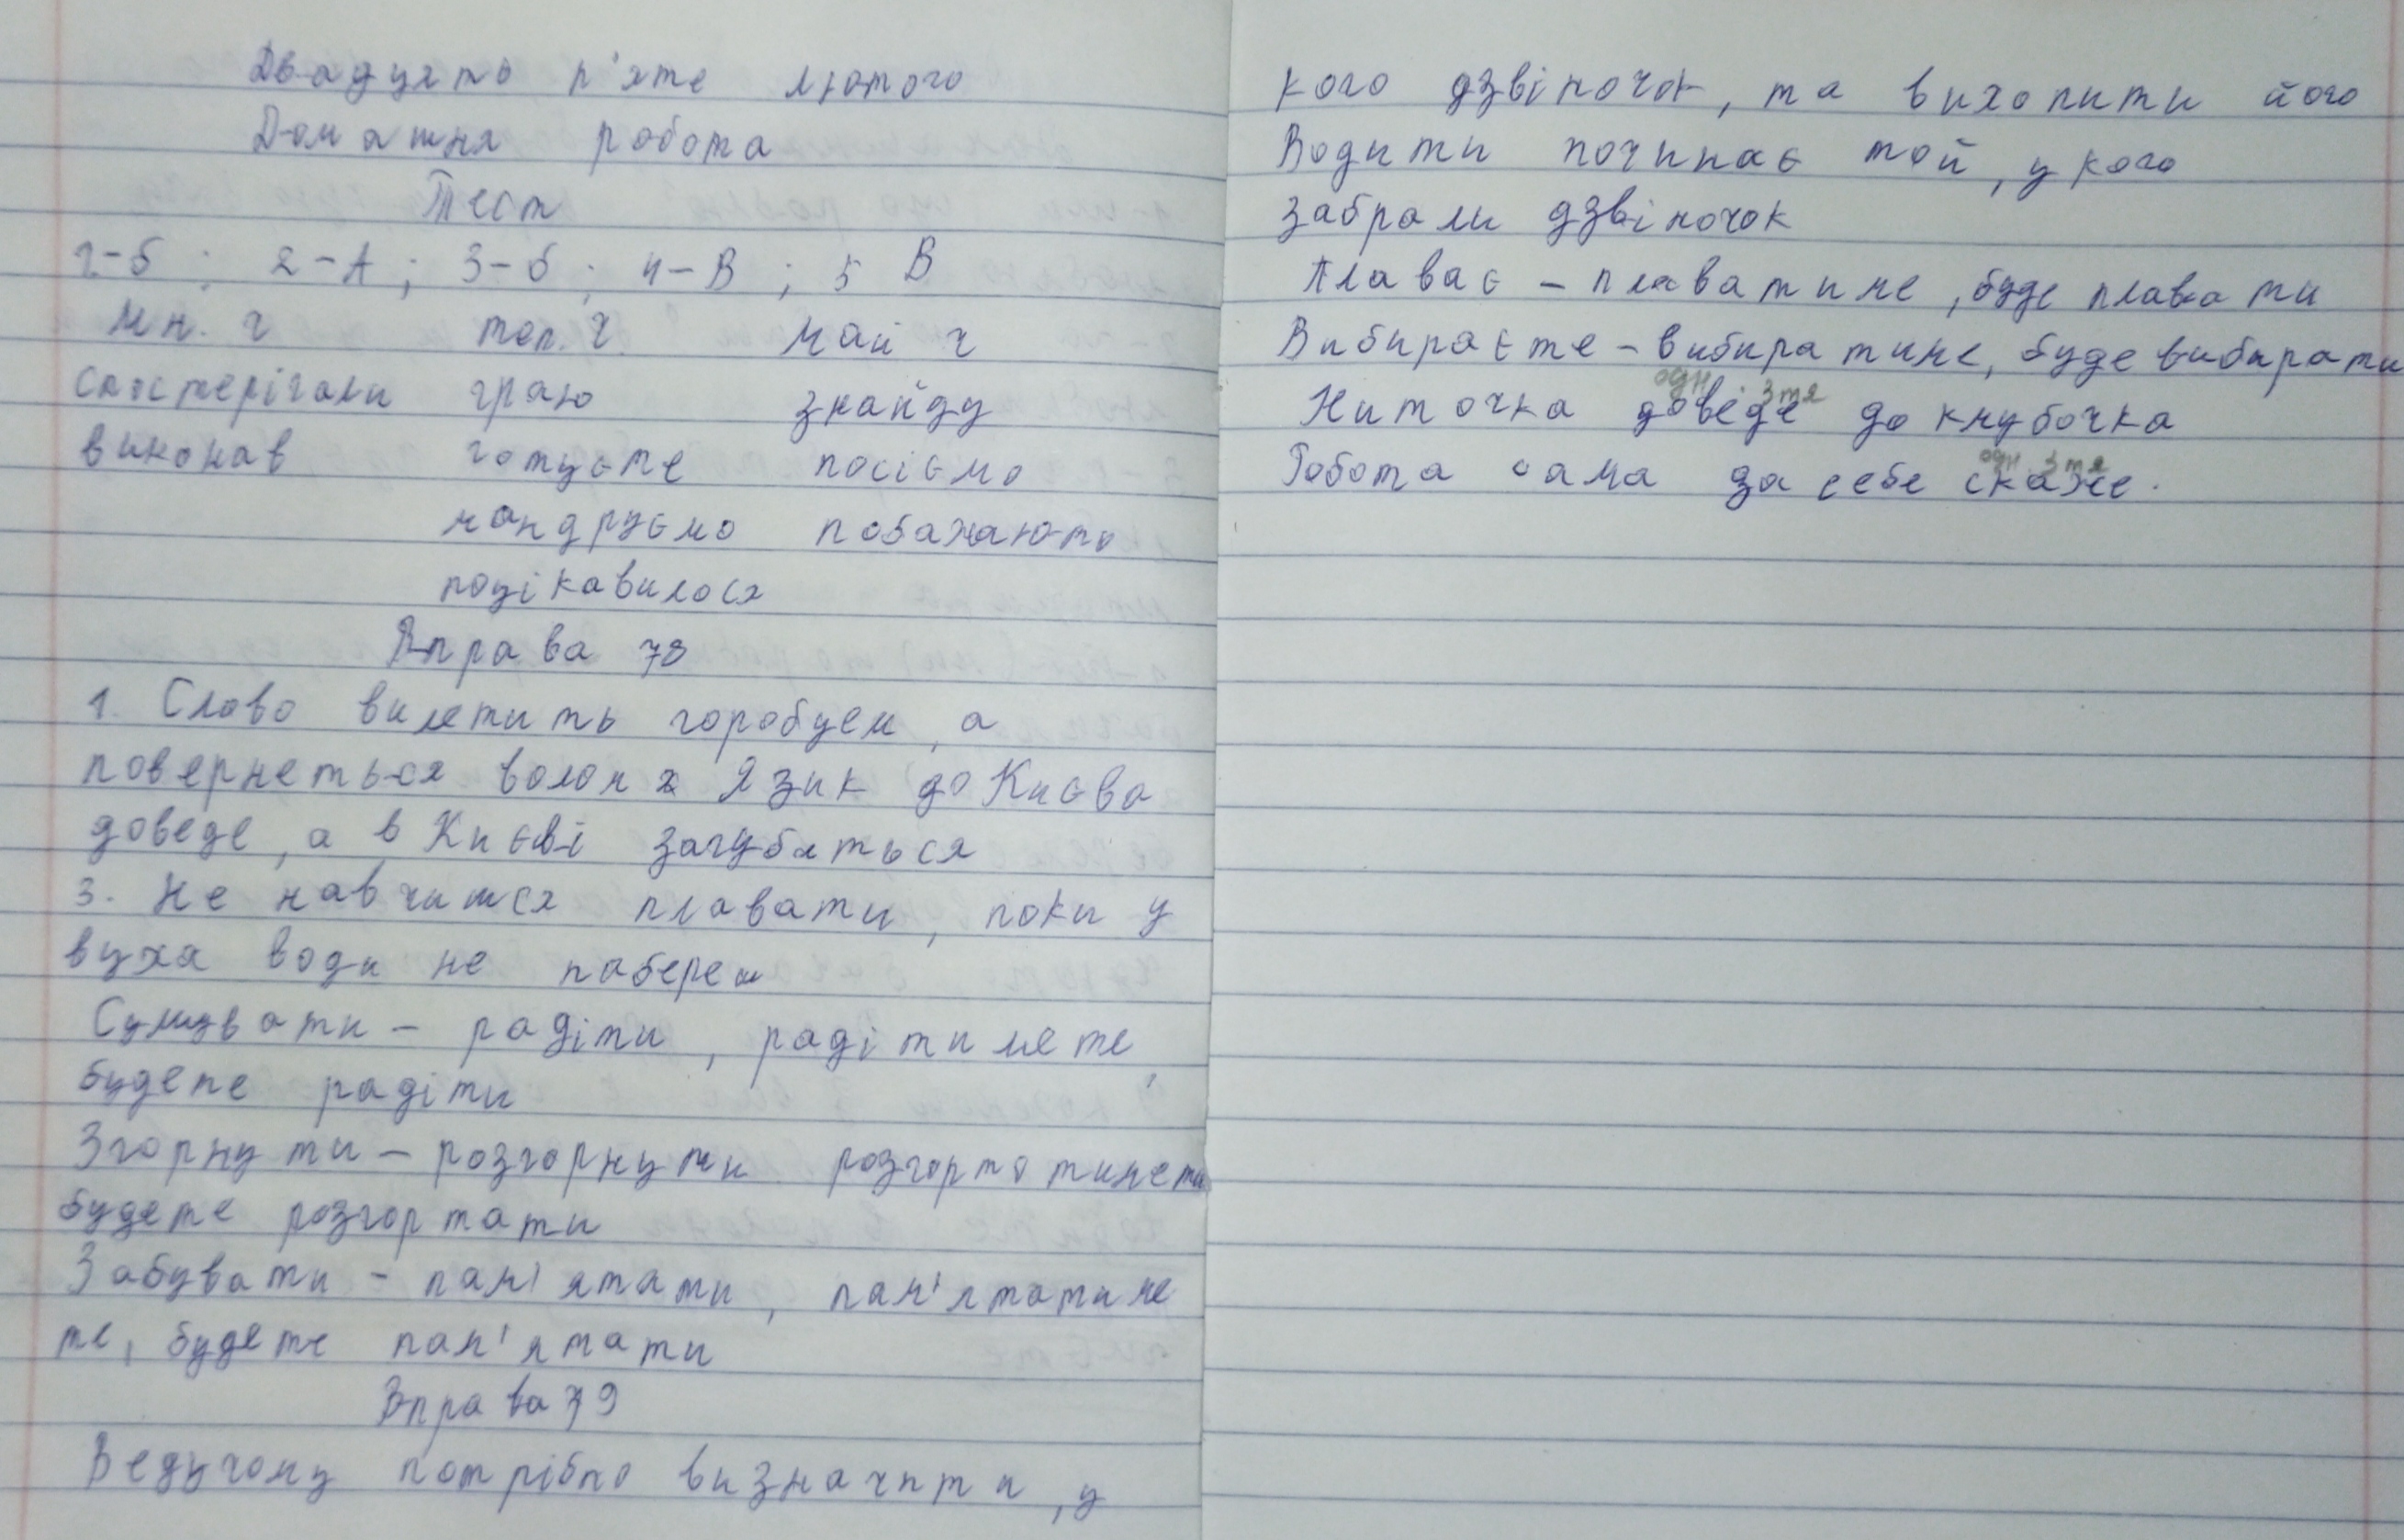 Двадцять п'яте лютого
Домашня робота
Тест
1-б ; 2-А ; 3-б ; 4-В ; 5 В
Мн. ч теп. ч. Май ч
спостерігали граю знайду
виконав готуєте посіємо
мандруємо побажають
поцікавилося
Вправа 78
1. Слово вилетить горобцем, а
повернеться волом Язик до Києва
доведе, а в Києві загубиться
3. Не навчишся плавати, поки у
вуха води не набереш
Сумувати - радіти, радітимете,
будете радіти
Згорнути - розгорнути розгортатимете
будете розгортати
Забувати - пам'ятати, пам'ятатиме
те, будете пам'ятати
Вправа 79
Ведучому потрібно визначити, у
кого дзвіночок, та вихопити його
Водити починає той, у кого
забрали дзвіночок
Плаває - плаватиме, буде плавати
Вибираєте - вибиратиме, буде вибирати
одн 3тя
Ниточка доведе до клубочка
одн. 3тя
Робота сама за себе скаже.